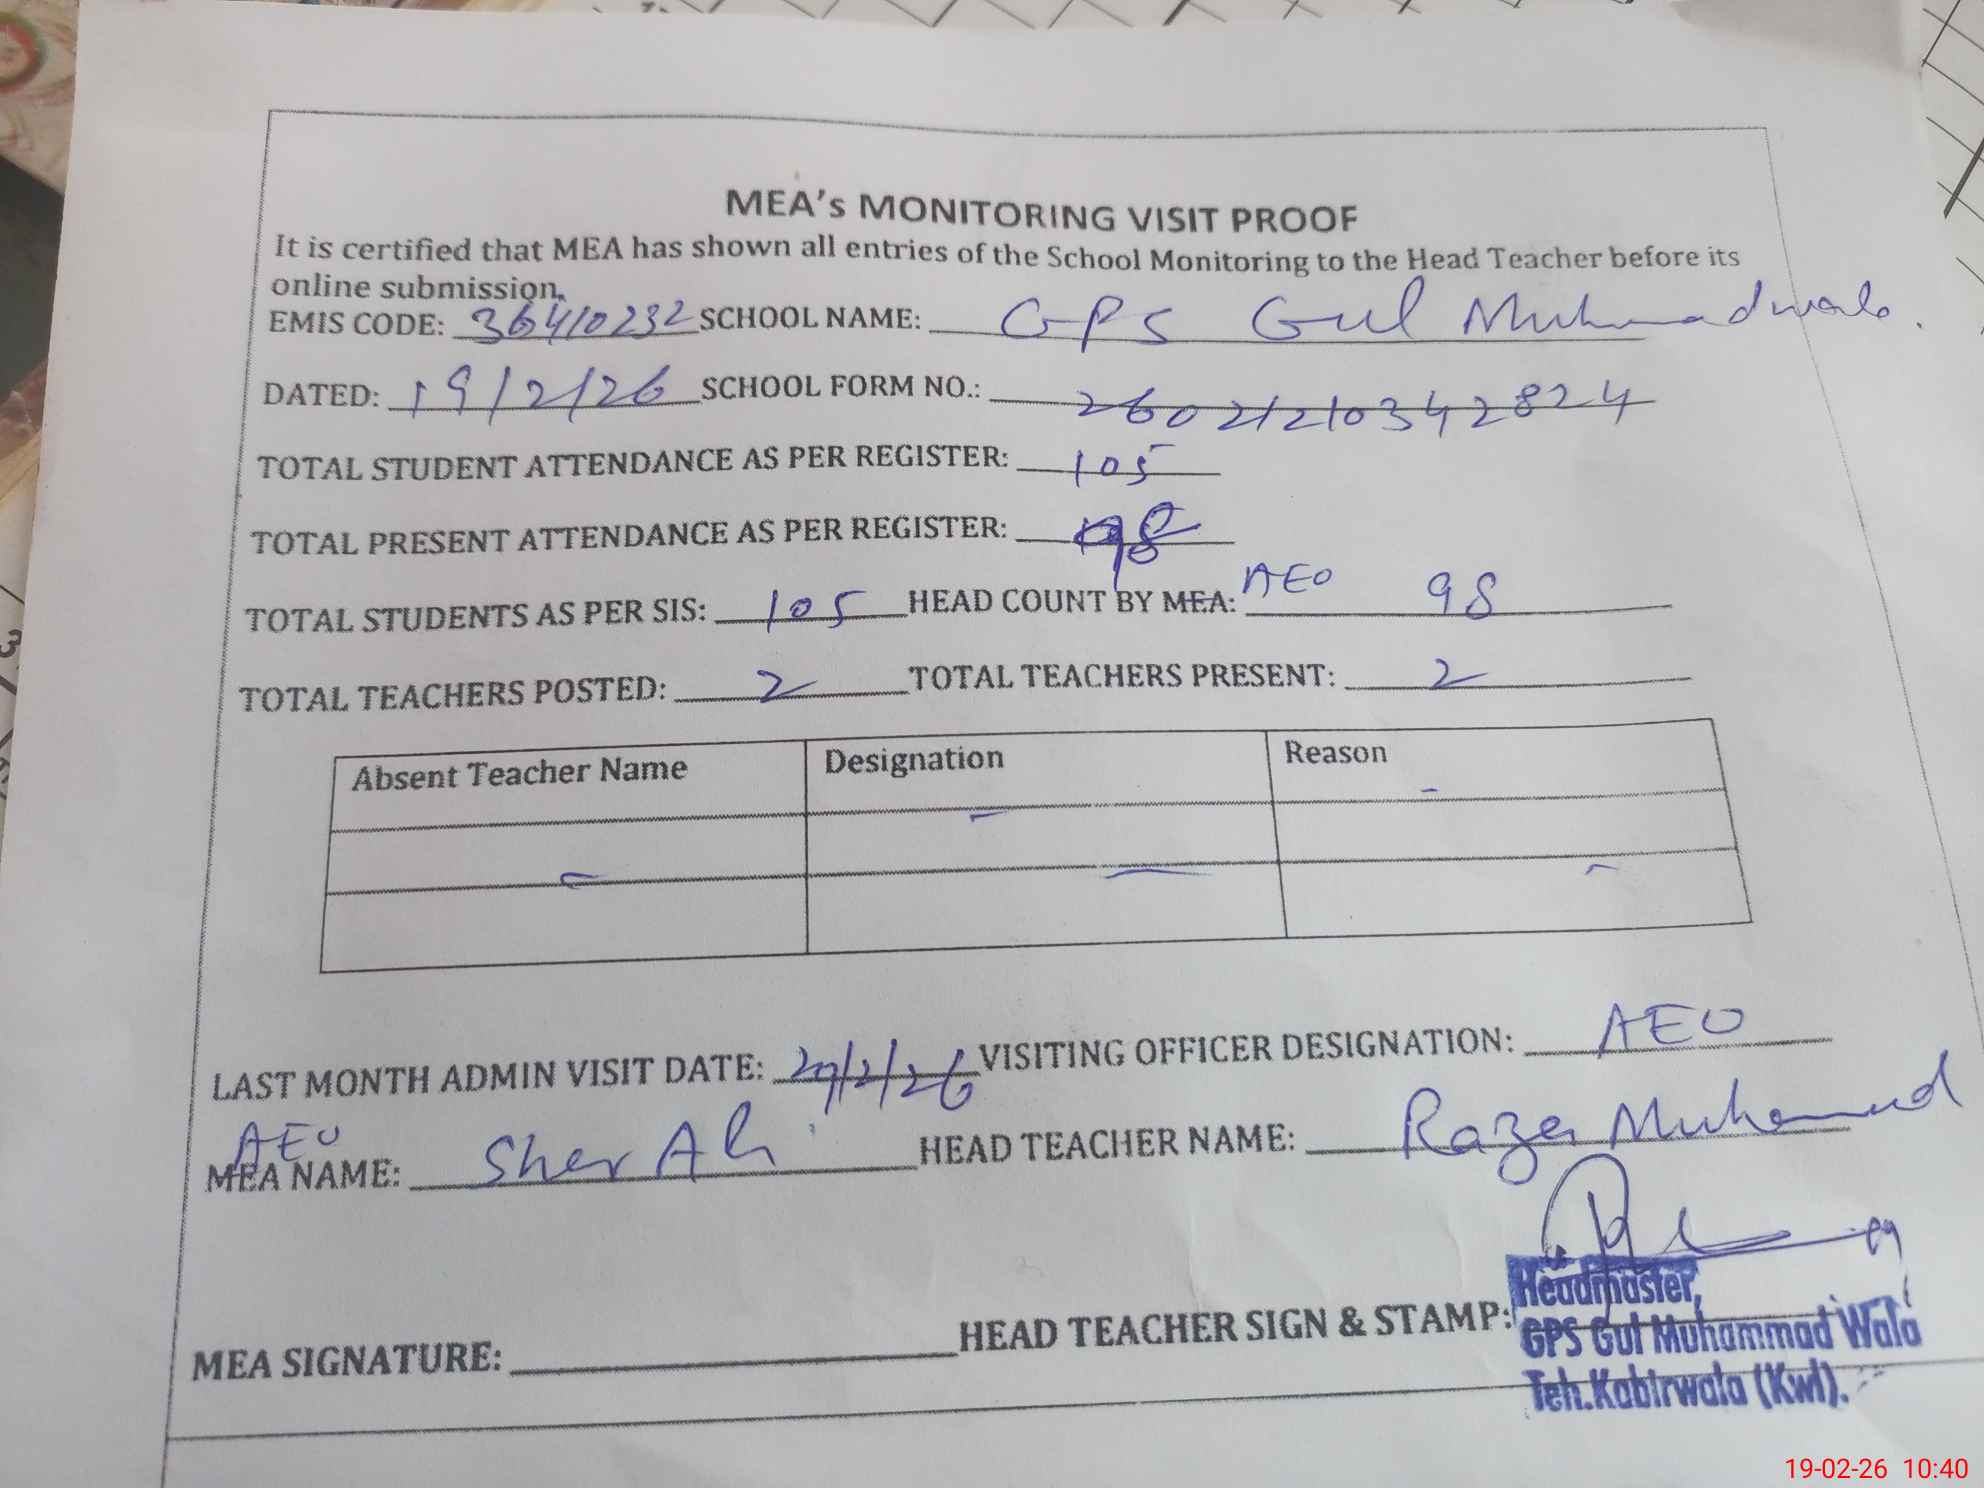 MEA's MONITORING VISIT PROOF
It is certified that MEA has shown all entries of the School Monitoring to the Head Teacher before its
online submission.
EMIS CODE: 36410232 SCHOOL NAME: GPS Gul Muhmmadwala.
DATED: 19/2/26 SCHOOL FORM NO.: 26021210342824
TOTAL STUDENT ATTENDANCE AS PER REGISTER: 105
TOTAL PRESENT ATTENDANCE AS PER REGISTER: 98
TOTAL STUDENTS AS PER SIS: 105 HEAD COUNT BY MEA: AEO 98
TOTAL TEACHERS POSTED: 2 TOTAL TEACHERS PRESENT: 2
Absent Teacher Name Designation Reason
LAST MONTH ADMIN VISIT DATE: VISITING OFFICER DESIGNATION: AEO
AEO
MEA NAME: Sher Ali HEAD TEACHER NAME: Raza Muhammad
MEA SIGNATURE: HEAD TEACHER SIGN & STAMP:
Headmaster,
GPS Gul Muhammad Wala
Teh.Kabirwala (Kwl).
19-02-26 10:40